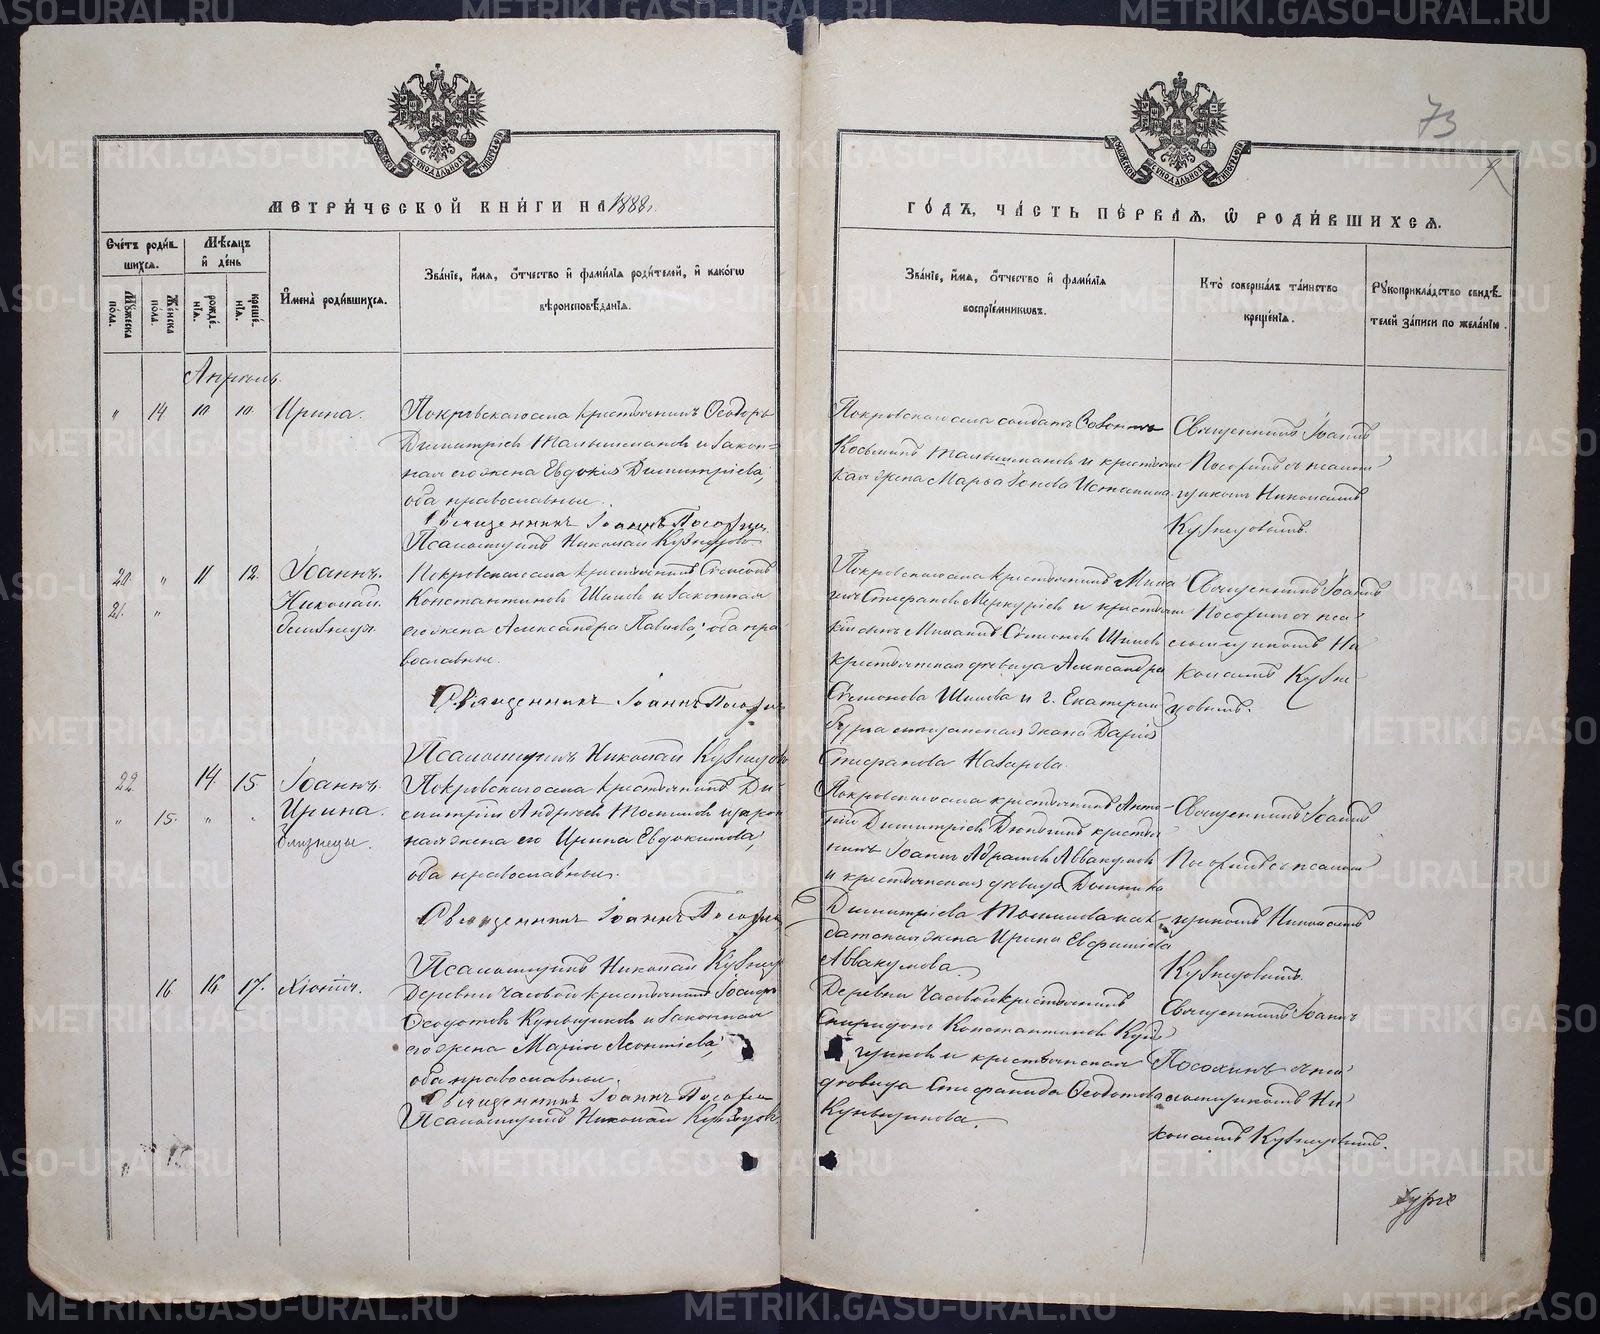 METRIKI.GASO-URAL.RU
73
МЕТРИ́ЧЕСКОЙ КНИ́ГИ НА 1888 г.
ГО́ДЪ, ЧА́СТЬ ПЕ́РВАѦ, Ѽ РОДИ́ВШИХСѦ.
Сче́тъ роди́вшихсѧ.
Мꙋ́жеска по́ла.
Же́нска по́ла.
Мѣ́сѧцъ и҆ де́нь
рожде́нїѧ.
креще́нїѧ.
И҆мена̀ роди́вшихсѧ.
Зва́нїе, и҆́мѧ, ѻ҆́тчество и҆ фамн́лїѧ роди́телей, и҆ како́гѡ
вѣроисповѣ́данїѧ.
Зва́нїе, и҆́мѧ, ѻ҆́тчество и҆ фами́лїѧ
воспрїе́мникѡвъ.
Кто̀ соверша́лъ та́инство
креще́нїѧ.
Рꙋкоприкла́дство свидѣ́телей за́писи по жела́нїю.
Апрѣль.
" 14 10 10 Ирина.
Покровскаго села крестьянинъ Ѳеодоръ
Димитріев Малышкановъ и закон-
ная его жена Евдокія Димитріева,
оба православные.
Священникъ Іоаннъ Посохин
Псаломщикъ Николай Кузнецовъ
Покровскаго села солдатъ
Косьминъ и крестьян
кая жена Марья Іонова
Священникъ Іоаннъ
Посохинъ съ псалом
щикомъ Николаемъ
Кузнецовымъ.
20. " 11 12. Іоаннъ.
21. " Николай.
близнецы.
Покровскаго села крестьянинъ Симеонъ
Константиновъ Шиловъ и законная
его жена Александра Павлова, оба пра
вославные.
Священникъ Іоаннъ Посохин
Псаломщикъ Николай Кузнецовъ
Покровскаго села крестьянинъ Миха
илъ Стефановъ Меркурьевъ и крестьян
скій сынъ Михаилъ Симеоновъ Шиловъ
крестьянская дѣвица Александра
Симеонова Шилова и г. Екатерин
бурга жена Дарія
Стефанова Назарова.
Священникъ Іоаннъ
Посохинъ съ пса
ломщикомъ Ни
колаемъ Кузне
цовымъ.
22. 14 15 Іоаннъ.
" 15. " " Ирина.
близнецы.
Покровскаго села крестьянинъ Ди
митрій Андреевъ и закон
ная жена его Ирина Евдокимова,
оба православные.
Священникъ Іоаннъ Посохин
Псаломщикъ Николай Кузнец
Покровскаго села крестьянинъ Анто
ній Димитріевъ крестья
нинъ Іоаннъ Абрамовъ Аввакумовъ
и крестьянская дѣвица Домника
Димитріева и сол
датская жена Ирина
Аввакумова.
Священникъ Іоаннъ
Посохинъ съ псалом
щикомъ Николаемъ
Кузнецовымъ.
16. 16. 17. Хіонія.
Деревни Часовой крестьянинъ Іосифъ
Ѳеодотовъ Куньщиковъ и законная
его жена Марія Леонтіева,
оба православные.
Священникъ Іоаннъ Посохин
Псаломщикъ Николай Кузнецовъ
Деревни Часовой крестьянинъ
Спиридонъ Константиновъ Кунь
щиковъ и крестьянская
дѣвица Стефанида Ѳеодотова
Куньщикова.
Священникъ Іоаннъ
Посохинъ съ пса
ломщикомъ Ни
колаемъ Кузнецовымъ.